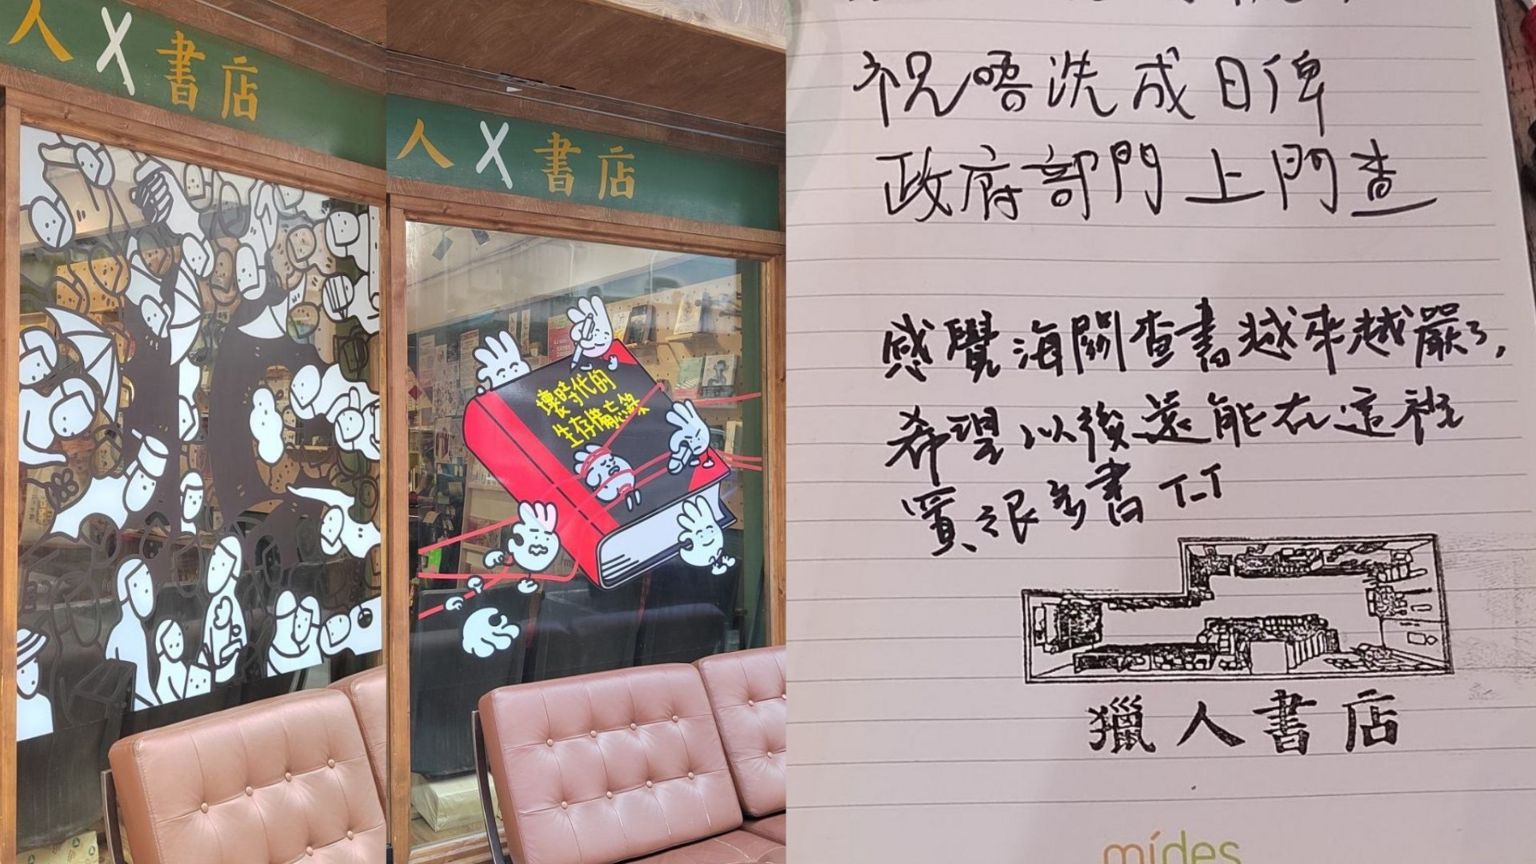 人X書店
人X書店
壞時代的
生存備忘錄
祝唔洗成日俾
政府部門上門查
感覺海關查書越來越嚴了,
希望以後還能在這裡
買很多書 T_T
獵人書店
mídes